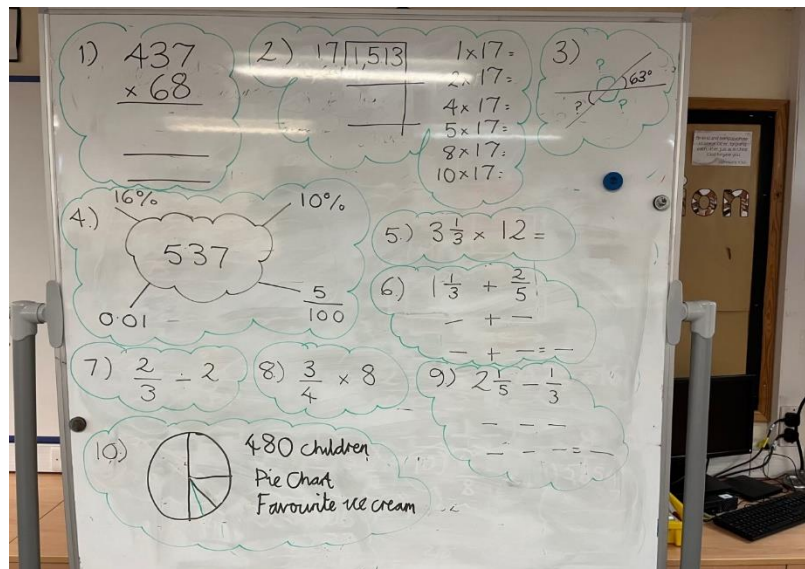 1) 437
× 68
2) 17 1,513
1 × 17 =
2 × 17 =
4 × 17 =
5 × 17 =
8 × 17 =
10 × 17 =
3) ? 63°
? ?
4.) 16% 10%
537
0.01 5/100
5.) 3 1/3 × 12 =
6) 1 1/3 + 2/5
— + —
— + — = —
7) 2/3 ÷ 2
8.) 3/4 × 8
9) 2 1/5 – 1/3
— — —
— — — = —
10.) 480 children
Pie Chart
Favourite ice cream
on